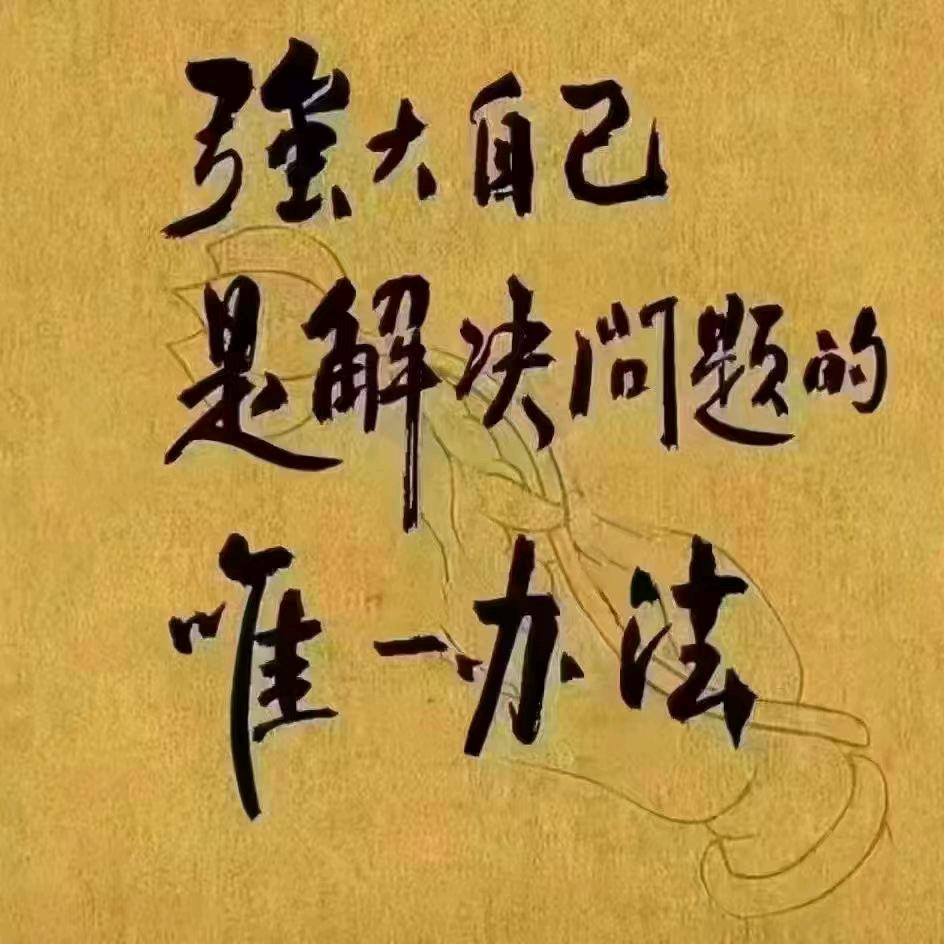 強大自己
是解决问题的
唯一办法